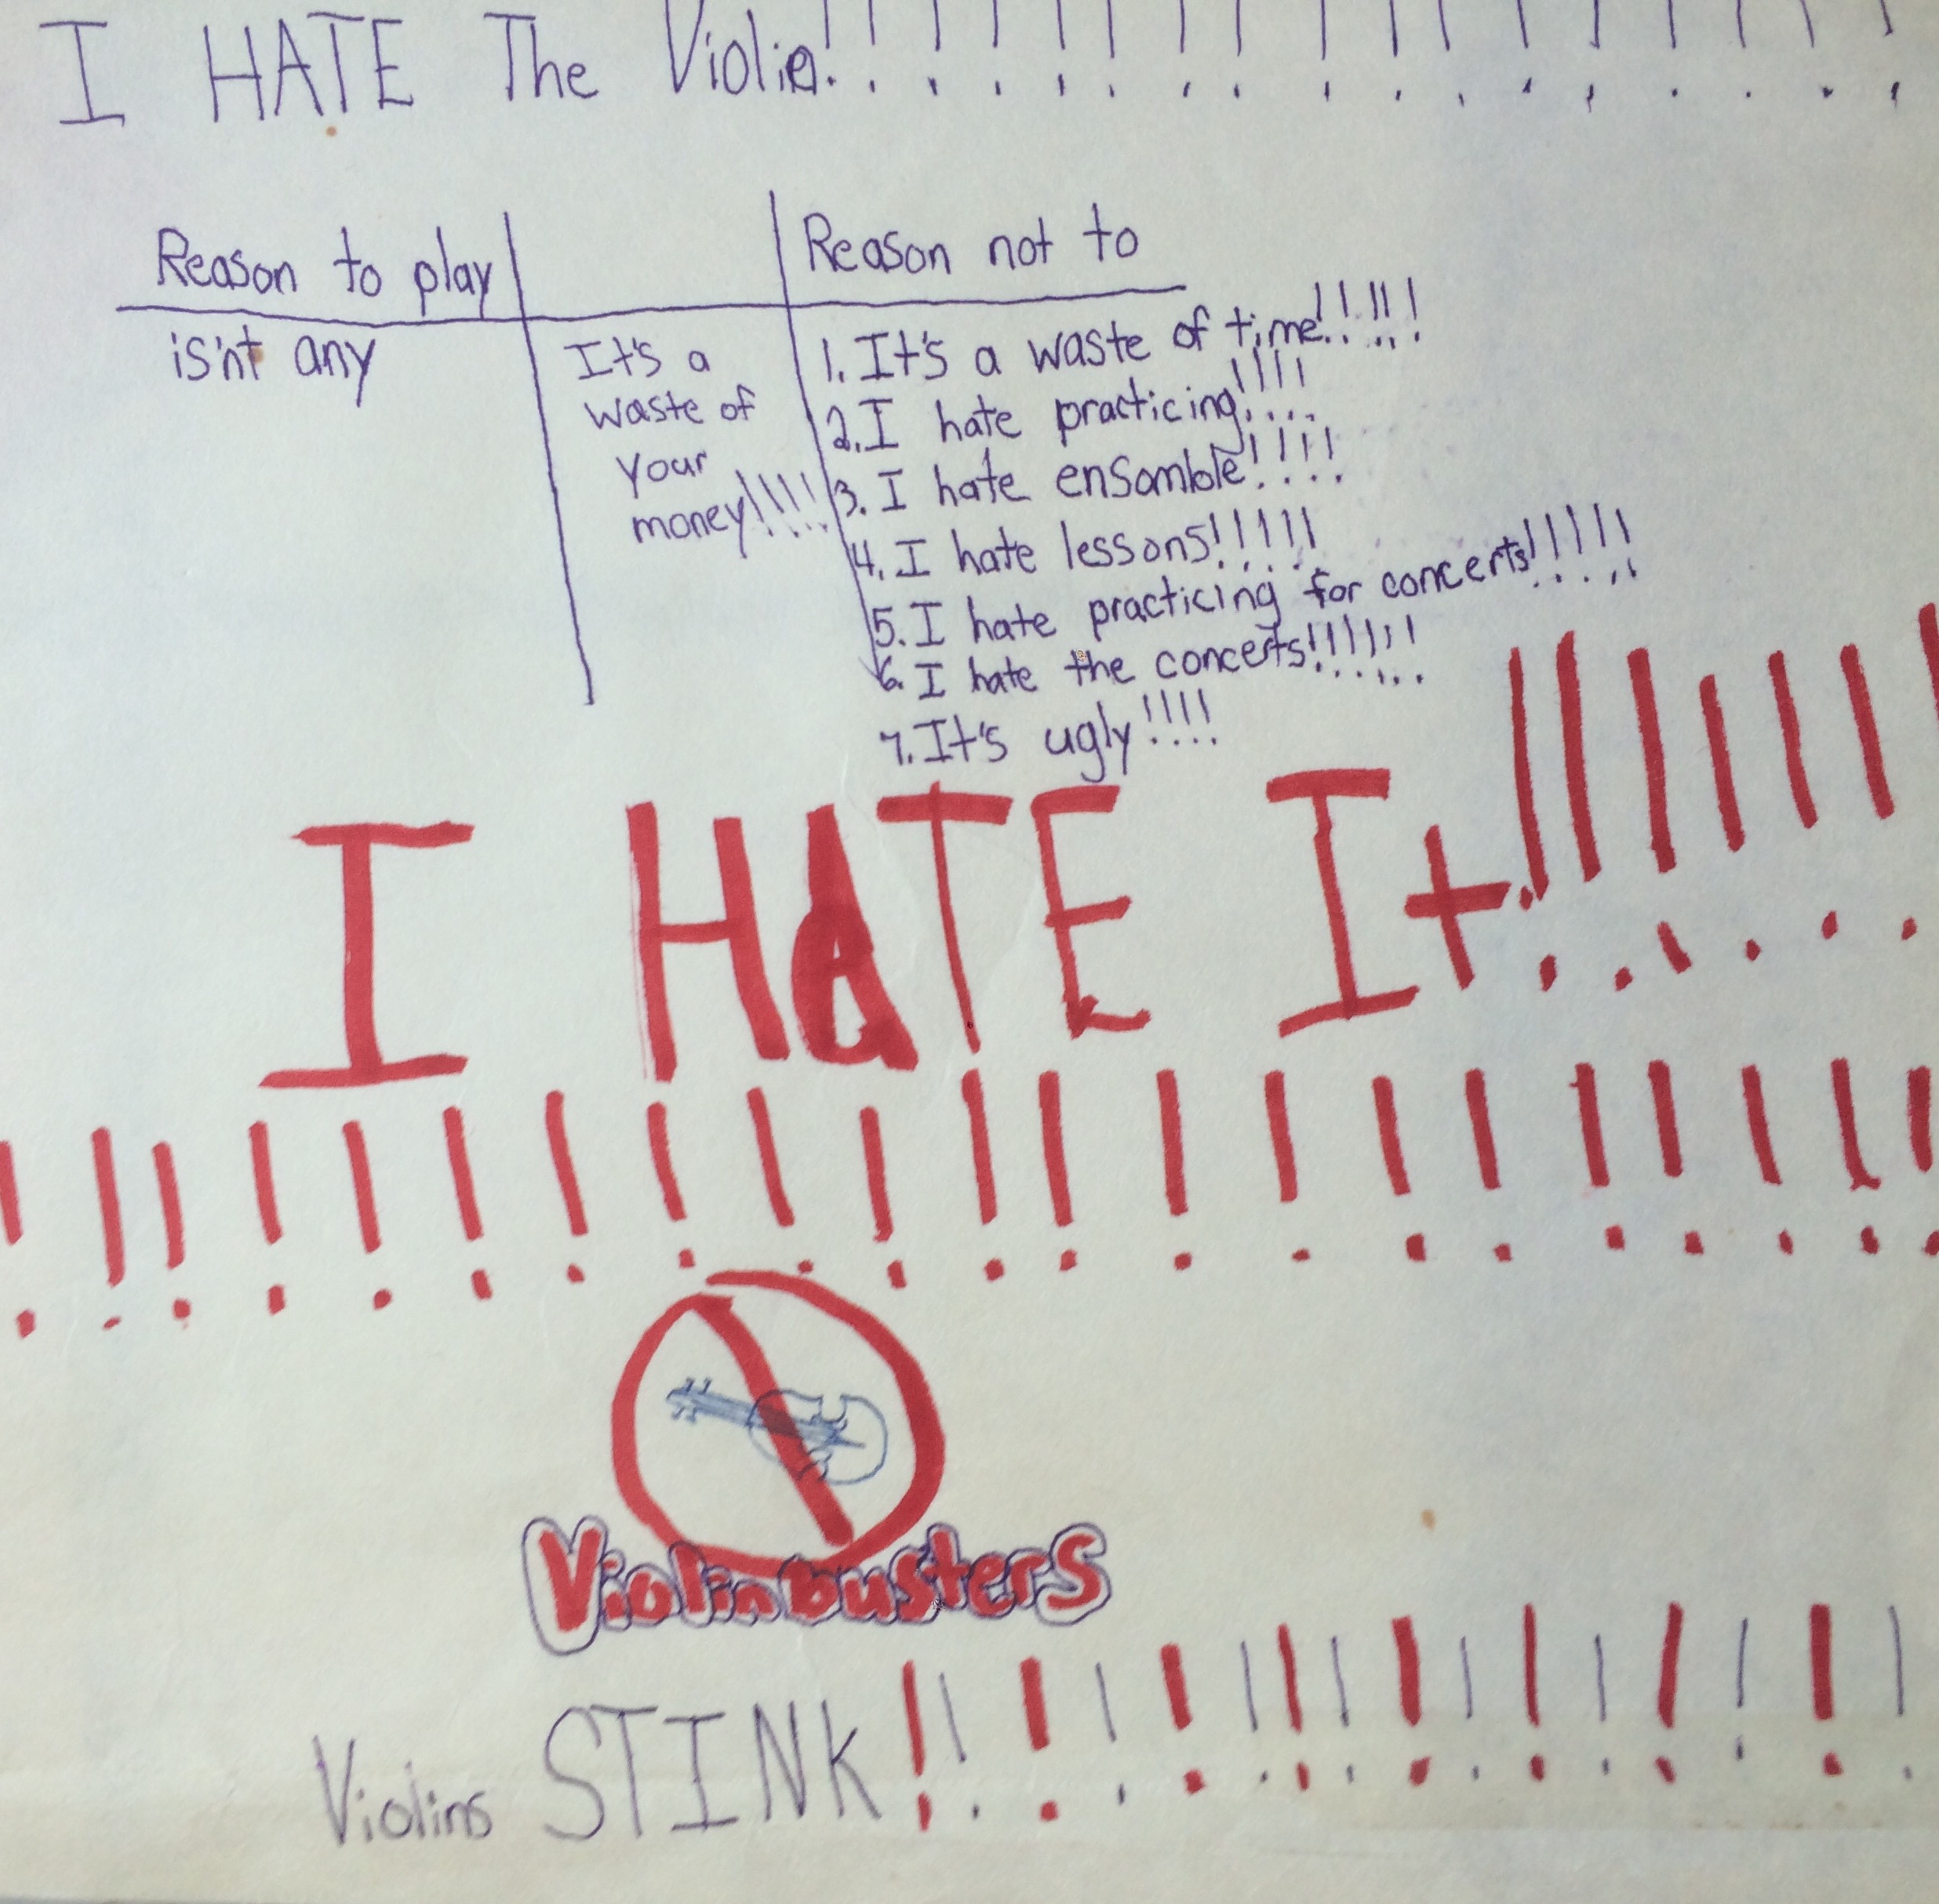 I HATE The Violin!!!!!!!!!!!!!!!!!
Reason to play
Reason not to
is'nt any
It's a
waste of
your
money!!!!!
1. It's a waste of time!!!!!
2. I hate practicing!!!!
3. I hate ensamble!!!!!
4. I hate lessons!!!!!!
5. I hate practicing for concerts!!!!!
6. I hate the concerts!!!!!!
7. It's ugly!!!!
I HATE It!!!!!!!
!!!!!!!!!!!!!!!!!!!!!
Violinbusters
Violins STINK!!!!!!!!!!!!!!!!